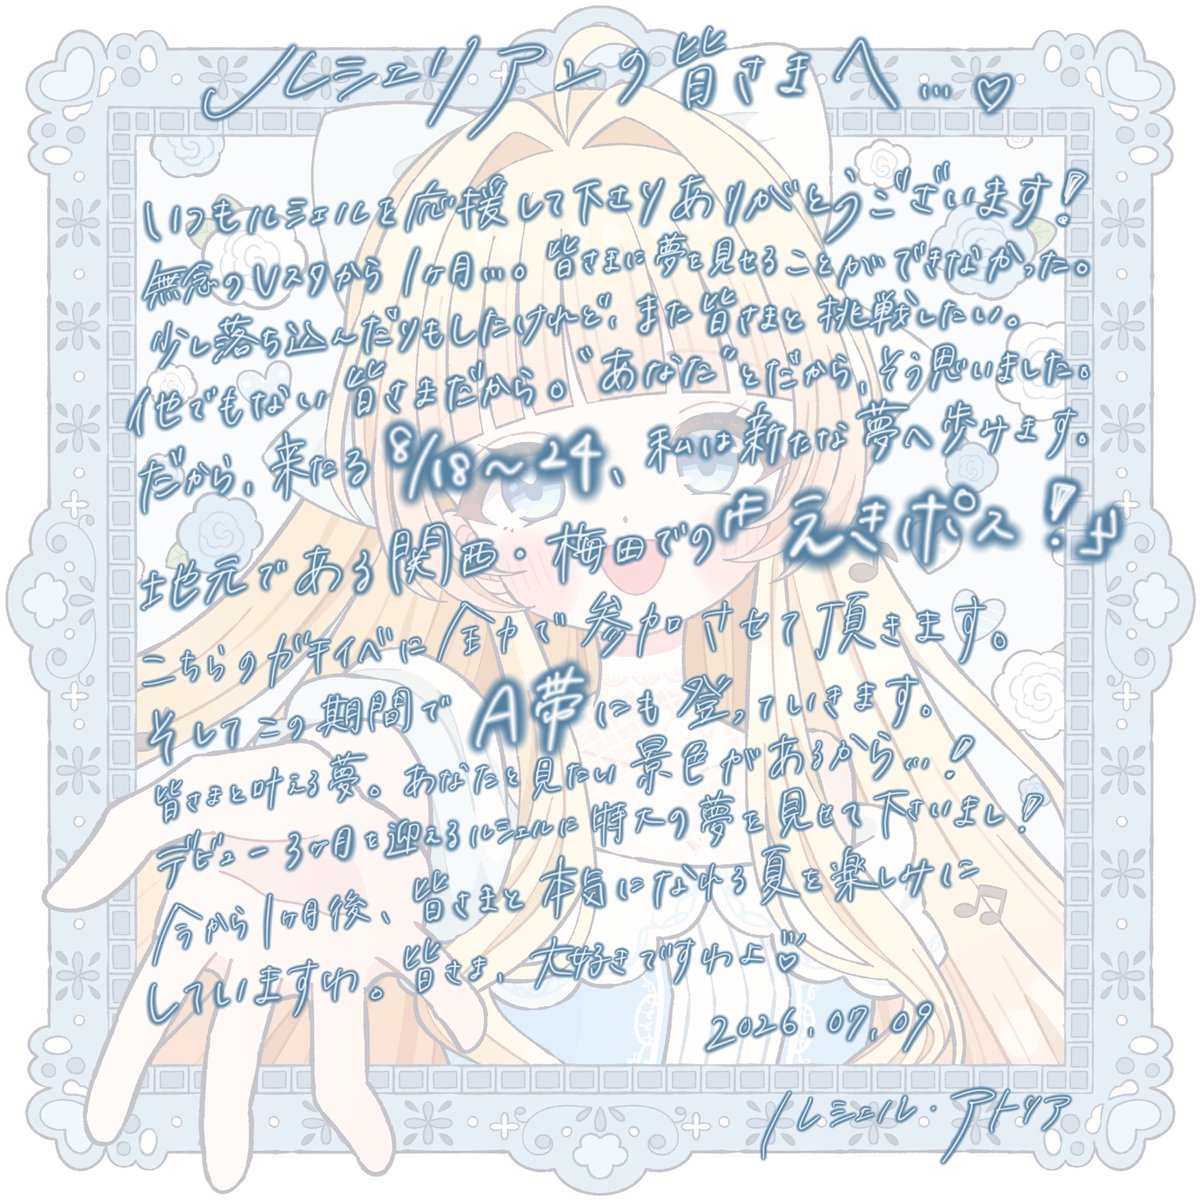 ルシェリアンの皆さまへ…♡
いつもルシェルを応援して下さりありがとうございます!
無念のVスタから1ヶ月…。皆さまに夢を見せることができなかった。
少し落ち込んだりもしたけれど、また皆さまと挑戦したい。
他でもない皆さまだから。"あなた"とだから、そう思いました。
だから、来たる8/18〜24、私は新たな夢へ歩みます。
地元である関西・梅田での『えきポス!』
こちらのガチイベに全力で参加させて頂きます。
そしてこの期間でA帯にも登っていきます。
皆さまと叶える夢。あなたと見たい景色があるから…!
デビュー3ヶ月を迎えるルシェルに特大の夢を見せて下さいまし!
今から1ヶ月後、皆さまと本気になれる夏を楽しみに
していますわ。皆さま、大好きですわよ♡
2026.07.09
ルシェル・アトリア